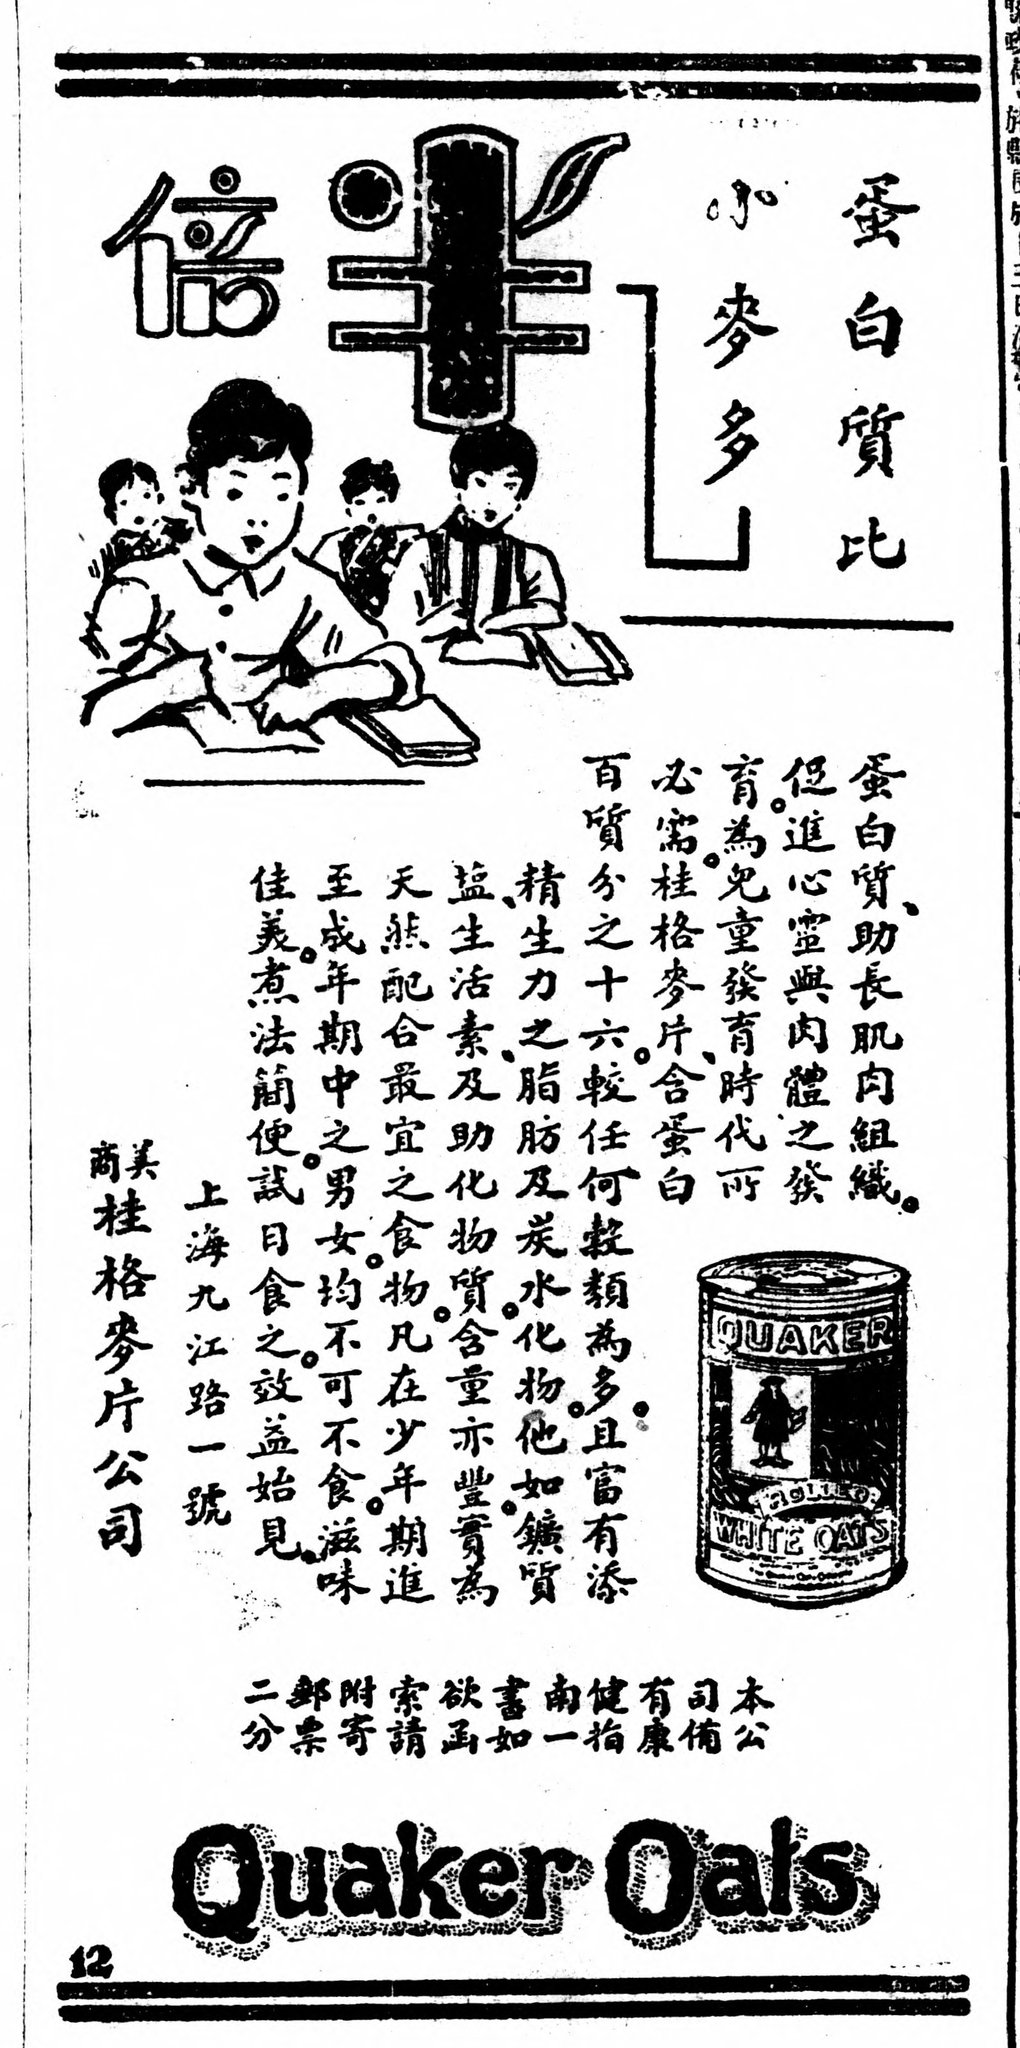 蛋白質比
小麥多
半倍
蛋白質、助長肌肉組織。
促進心靈與肉體之發
育。為兒童發育時代所
必需。桂格麥片、含蛋白
百質分之十六。較任何穀類為多。且富有添
精生力之脂肪及炭水化物。他如鑛質
塩、生活素、及助化物質。含量亦豐。實為
天然配合最宜之食物。凡在少年期進
至成年期中之男女。均不可不食。滋味
佳美。煮法簡便。試日食之。效益始見。
上海九江路一號
美商
桂格麥片公司
QUAKER
ROLLED
WHITE OATS
本公
司備
有康
健指
南一
書如
欲函
索請
附寄
郵票
二分
Quaker Oats
12